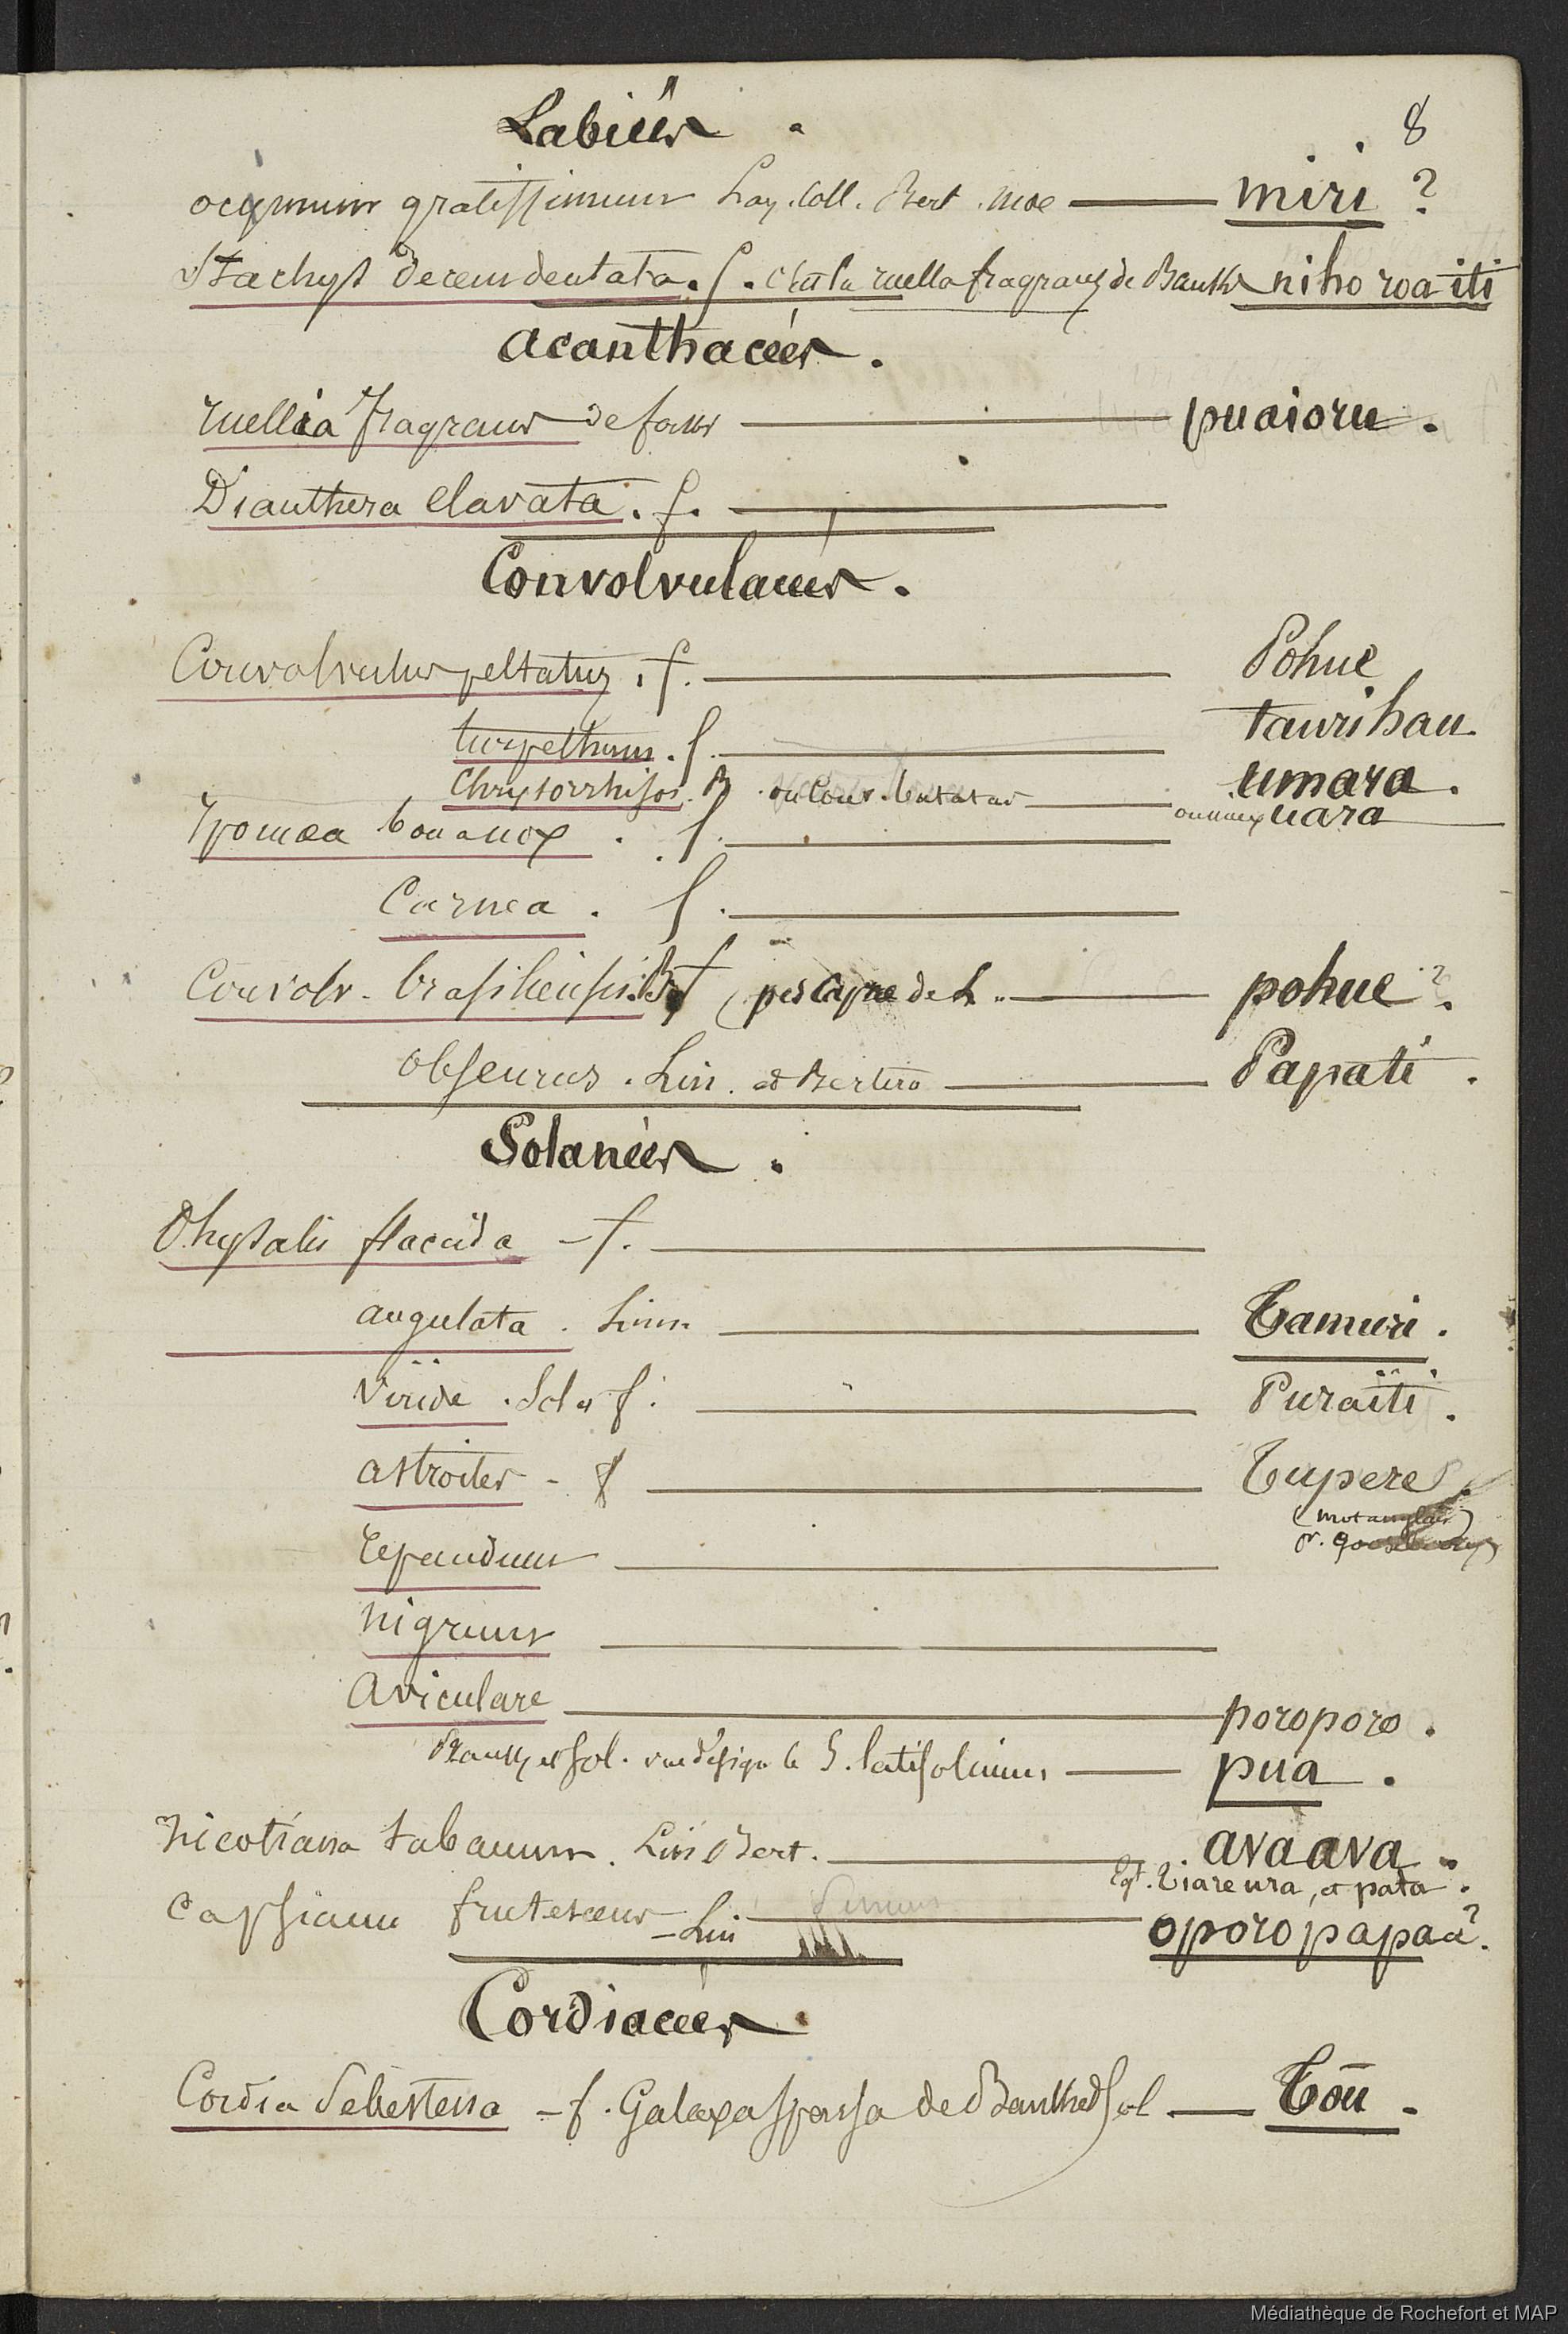 8
Labiées
ocymum gratissimum Lay. Coll. Bert. moe miri ?
Stachys decemdentata. f. c'est la ruellia fragrans de Banks niho roa iti
acanthacées.
ruellia fragrans de forster puaioru.
Dianthera clavata. f.
Convolvulacées.
Convolvulus peltatus. f. Pohue
turpethum. f. taurihau
Chrysorrhisos. B. ou Conv. batatas umara.
ou mieux uara
Ipomaea bona nox. f.
Carnea. f.
Convolv. brasiliensis. B. f (pes capræ de L. pohue ?.
Obscurus. Lin. et Bertero Papati.
Solanées.
Physalis flaccida - f.
angulata. Linn. Tamuri.
Viride. Sol. et f. Puraïti.
astroites - f Tupere
(mot anglais)
pr. gooseberry
repandum
nigrum
Aviculare poroporo.
Banks et Sol. S. latifolium pua.
Nicotiana tabacum. Lin Bert. avaava.
Eqt. Tiareura, et pata.
Capsicum frutescens - Lin oporo papaa ?.
Cordiacées
Cordia Sebestena - f. Galaxa sparsa de Banks et Sol Toū.
Médiathèque de Rochefort et MAP